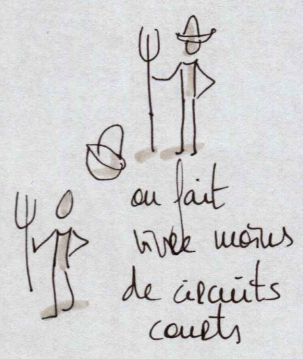 on fait
vivre moins
de circuits
courts